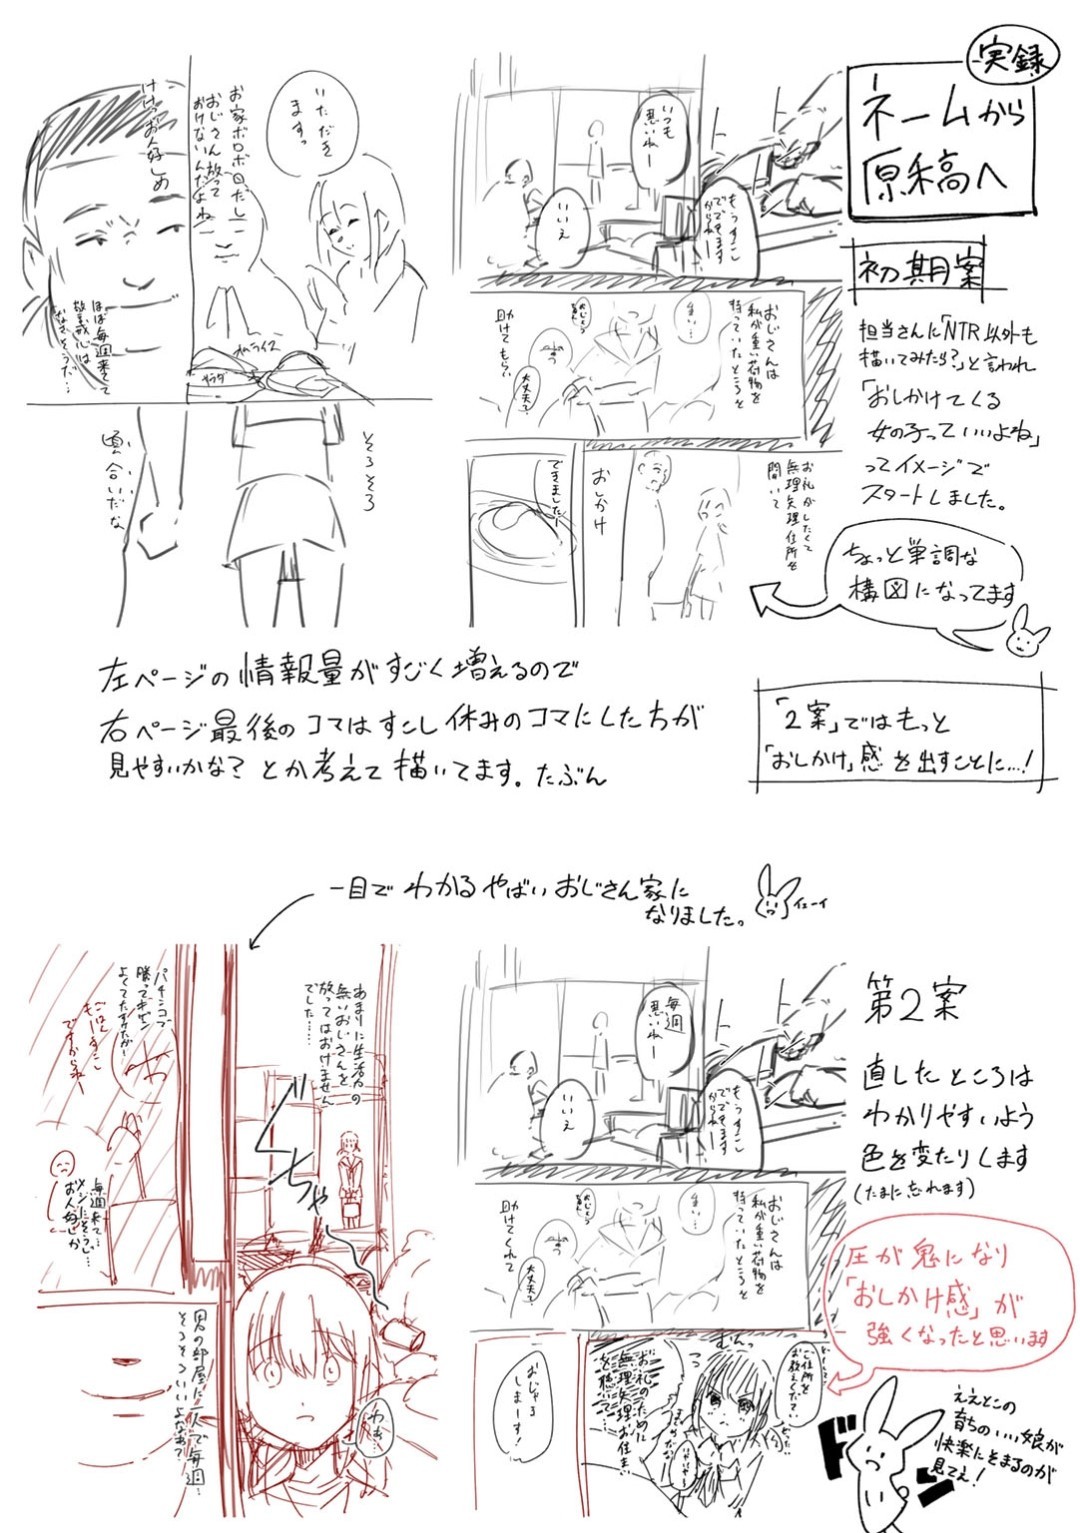 実録
ネームから
原稿へ
初期案
担当さんに「NTR以外も
描いてみたら?」と言われ
「おしかけてくる
女の子っていいよね」
ってイメージで
スタートしました。
ちょっと単調な
構図になってます
「2案」ではもっと
「おしかけ」感を出すことに…!
いつも
悪いねー
もうすこし
でできます
からねー
いいえ
おじさんは
私が重い荷物を
持っていたところを
大丈夫?
助けてもらい
お礼がしたくて
無理矢理住所を
聞いて
おしかけ
できましたー
いただき
ますっ
お家ボロボロだし
おじさん放って
おけないんだよね
オムライス
サラダ
けけっお人好しめ
ほぼ毎週来てて
警戒心は
なさそうだ…
そろそろ
頃合いだな
左ページの情報量がすごく増えるので
右ページ最後のコマはすこし休みのコマにした方が
見やすいかな?とか考えて描いてます。たぶん
一目でわかるやばいおじさん家に
なりました。
イエーイ
第2案
直したところは
わかりやすいよう
色を変たりします
(たまに忘れます)
圧が鬼になり
「おしかけ感」が
強くなったと思います
ええとこの
育ちのいい娘が
快楽にそまるのが
見てえ!
ドン
毎週
悪いねー
もうすこし
でできます
からねー
いいえ
おじさんは
私が重い荷物を
持っていたところを
大丈夫?
助けてくれて
ご住所を
お教えください
お礼のために
無理矢理お住まい
を聴いて
おじゃま
しまーす!
あまりに生活力の
無いおじさんを
放ってはおけません
でした……
ぐちゃ
わぁ…
パチンコで
勝ってキゲン
よくてたすけたが…
ごはん
もーすこし
ですからねー
毎週来て…
メシにそうじ…
お人好しか
男の部屋に一人で毎週…
そろそろいいよなぁ?